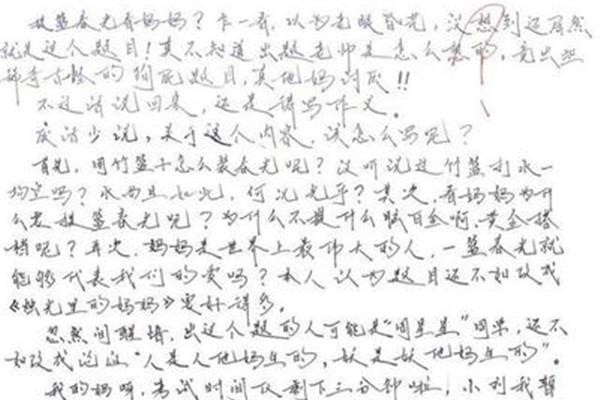 提篮春光看妈妈？乍一看，以为老眼昏花，没想到还居然
就是这个题目！真不知道出题老师是怎么想的，竟出些
稀奇古怪的狗屁题目，真他妈讨厌!!
不过话说回来，还是得写作文。
废话少说，关于这个内容，该怎么写呢？
首先，用竹篮子怎么装春光呢？没听说过竹篮打水一
场空吗？水而且如此，何况光乎？其次，看妈妈为什
么要提篮春光呢？为什么不提什么脑白金啊，黄金搭
档呢？再次，妈妈是世界上最伟大的人，一篮春光就
能够代表我们的爱吗？本人认为题目还不如改成
《烛光里的妈妈》要好得多。
忽然间醒悟，出这个题的人可能是“周星星”同学，还不
如改成论证“人是人他妈生的，妖是妖他妈生的”。
我的妈呀，考试时间仅剩下三分钟啦，小利我暂